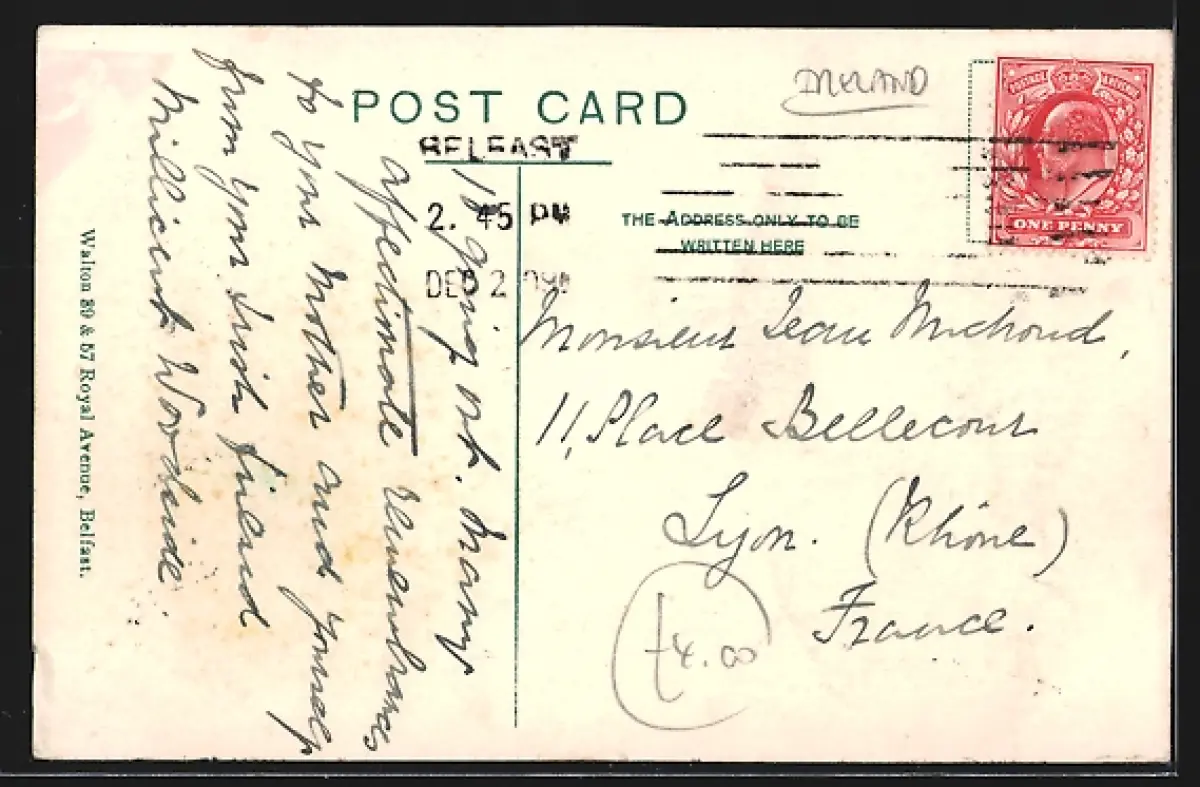 POST CARD
IRELAND
BELFAST
2. 45 PM
DEC 2 09
THE ADDRESS ONLY TO BE
WRITTEN HERE
ONE PENNY
Monsieur Jean Michoud,
11, Place Bellecour
Lyon. (Rhône)
France.
£4.00
is going on. Many
affectionate remembrances
to your Mother and yourself
from your Irish friend
Millicent Woodside.
Walton 39 & 57 Royal Avenue, Belfast.